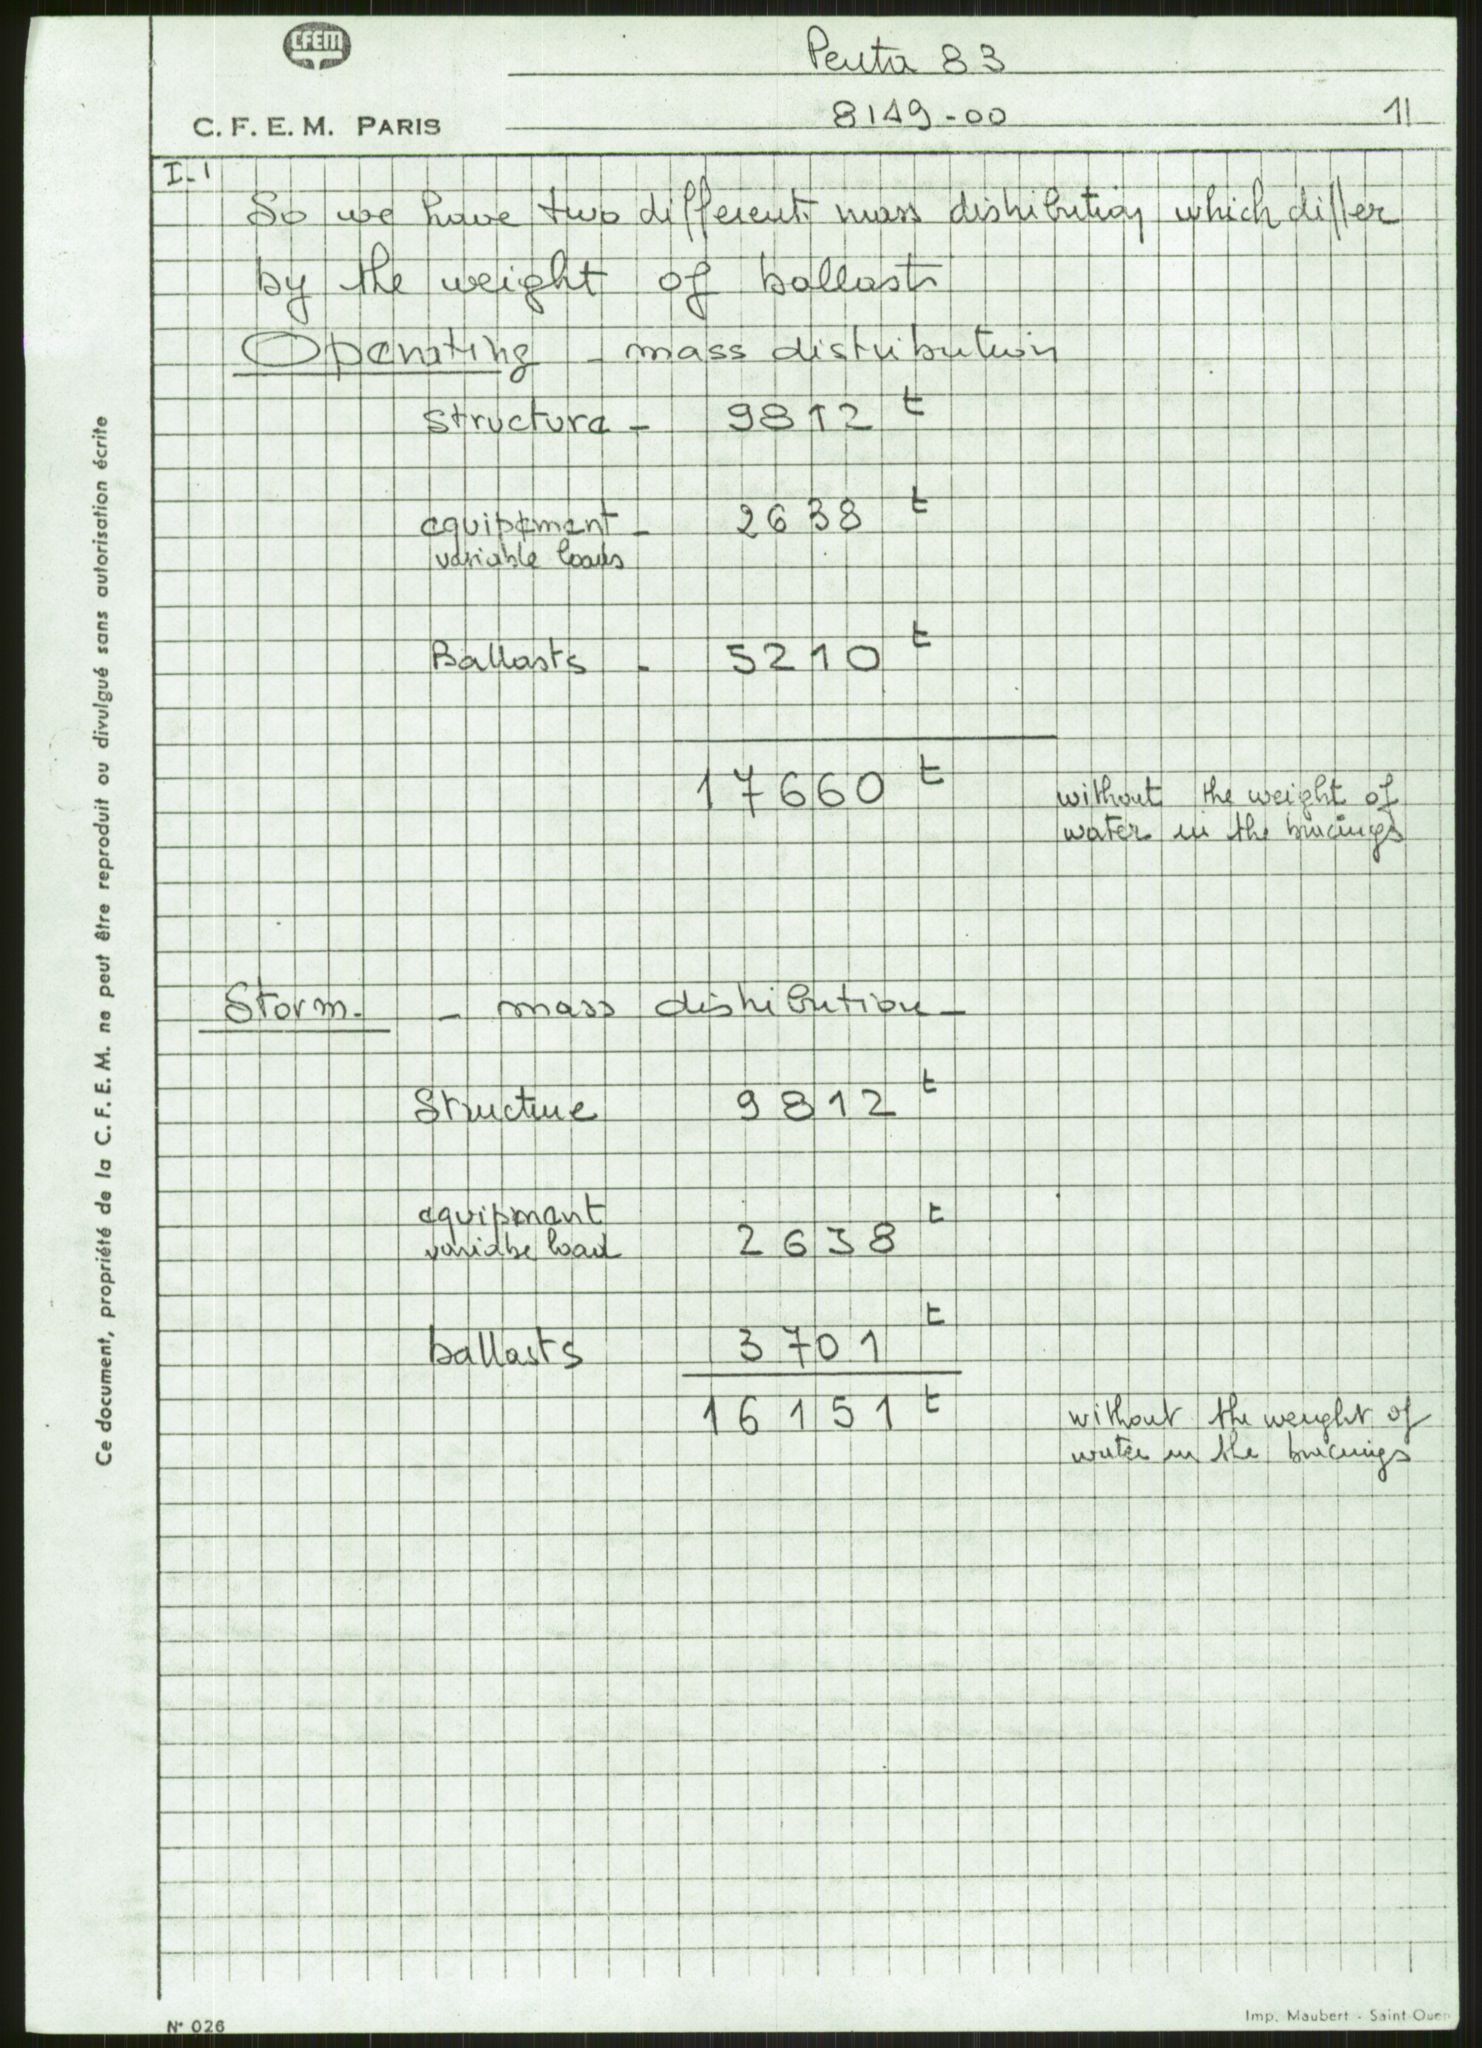 CFEM
Penta 83
C. F. E. M. PARIS
8149-00
11
I-1
So we have two different mass distribution which differ
by the weight of ballasts
Operating - mass distribution
Structure - 9812 t
equipement - 2638 t
variable loads
Ballasts - 5210 t
17660 t
without the weight of
water in the bracings
Storm. - mass distribution -
Structure 9812 t
equipment
variabe load 2638 t
ballasts 3701 t
16151 t
without the weight of
water in the bracings
Ce document, propriété de la C. F. E. M. ne peut être reproduit ou divulgué sans autorisation écrite
N° 026
Imp. Maubert - Saint-Ouen